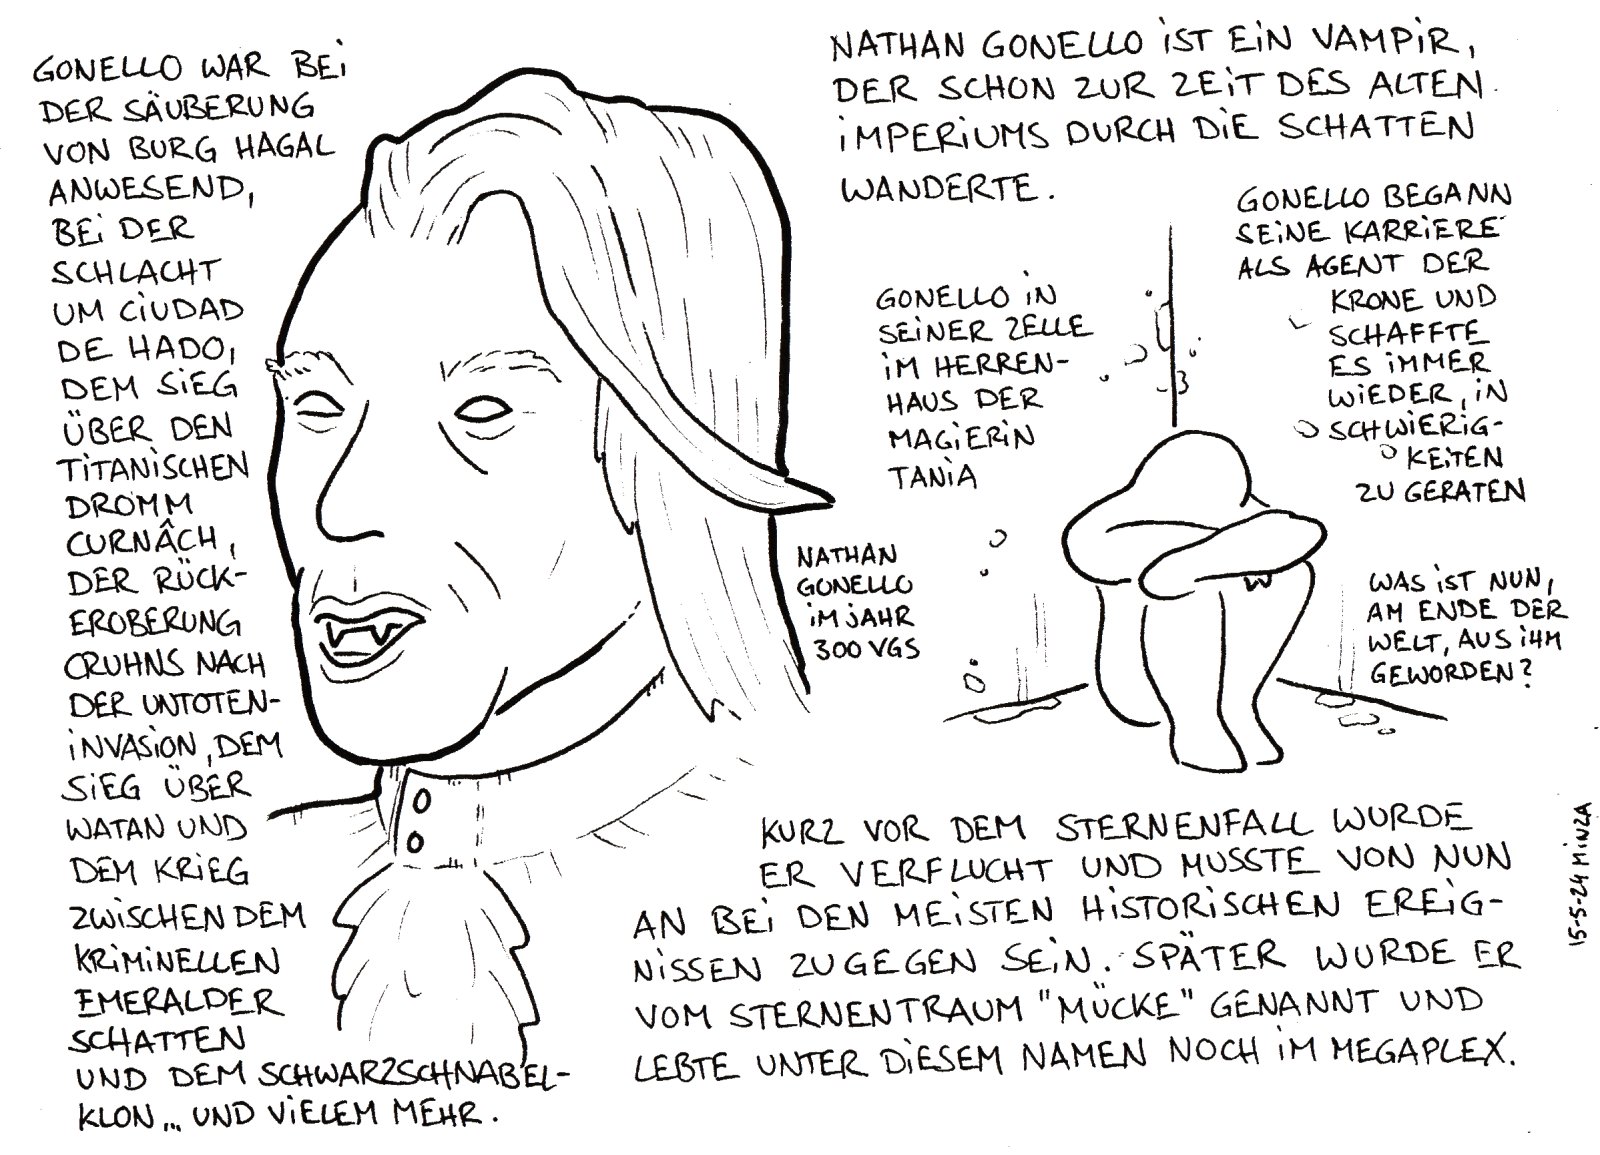 NATHAN GONELLO iST EiN VAMPiR,
DER SCHON ZUR ZEiT DES ALTEN
iMPERiUMS DURCH DiE SCHATTEN
WANDERTE.
GONELLO WAR BEi
DER SÄUBERUNG
VON BURG HAGAL
ANWESEND,
BEi DER
SCHLACHT
UM CiUDAD
DE HADO,
DEM SiEG
ÜBER DEN
TiTANiSCHEN
DROMM
CURNÂCH,
DER RÜCK-
EROBERUNG
CRUHNS NACH
DER UNTOTEN-
iNVASiON, DEM
SiEG ÜBER
WATAN UND
DEM KRiEG
ZWiSCHEN DEM
KRiMiNELLEN
EMERALDER
SCHATTEN
UND DEM SCHWARZSCHNABEL-
KLON... UND ViELEM MEHR.
NATHAN
GONELLO
iM JAHR
300 VGS
GONELLO iN
SEiNER ZELLE
iM HERREN-
HAUS DER
MAGiERiN
TANiA
GONELLO BEGANN
SEiNE KARRiERE
ALS AGENT DER
KRONE UND
SCHAFFTE
ES iMMER
WiEDER, iN
SCHWiERiG-
KEiTEN
ZU GERATEN
WAS iST NUN,
AM ENDE DER
WELT, AUS iHM
GEWORDEN?
KURZ VOR DEM STERNENFALL WURDE
ER VERFLUCHT UND MUSSTE VON NUN
AN BEi DEN MEiSTEN HiSTORiSCHEN EREiG-
NiSSEN ZUGEGEN SEiN. SPÄTER WURDE ER
VOM STERNENTRAUM "MÜCKE" GENANNT UND
LEBTE UNTER DiESEM NAMEN NOCH iM MEGAPLEX.
15-5-24 MiNZA